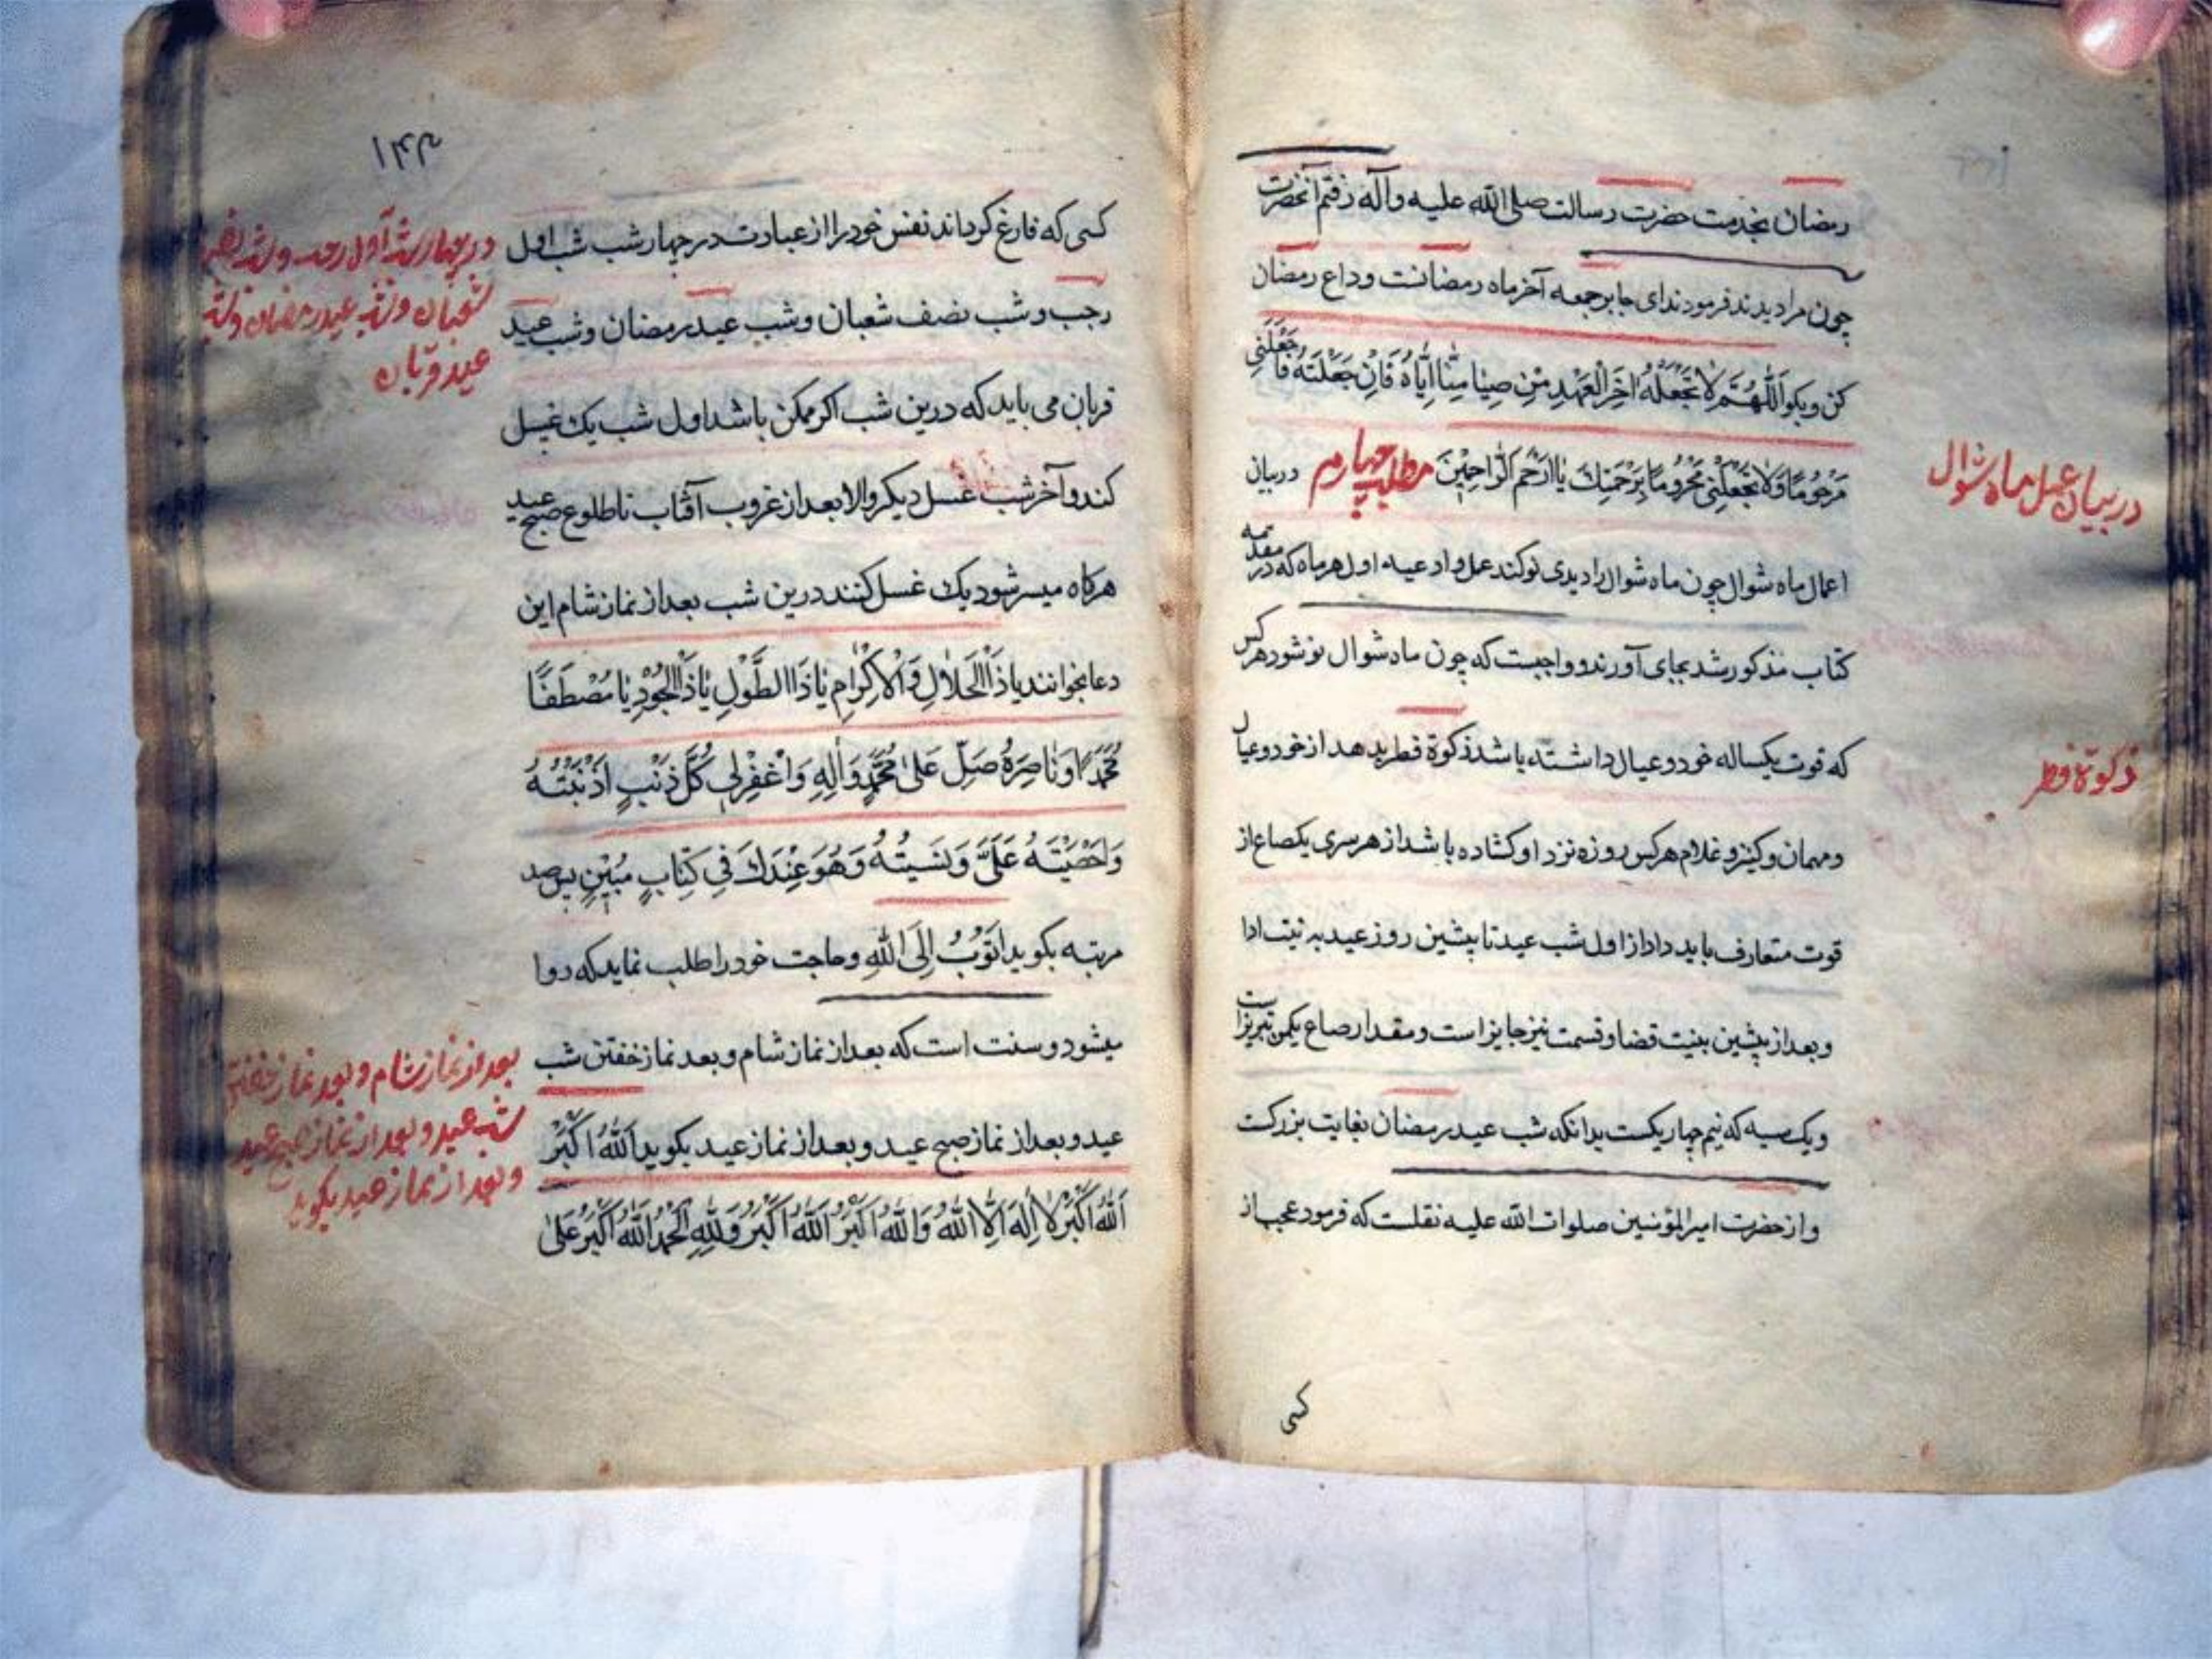 رمضان بخدمت حضرت رسالت صلی الله علیه وآله رفتم آنحضرت
چون مرا دیدند فرمودند ای جابر جمعه آخر ماه رمضانست وداع رمضان
کن و بکو اَللّهُمَّ لاتَجْعَلْهُ اخِرَالْعَهْدِ مِنْ صِیامِنا اِیّاهُ فَاِنْ جَعَلْتَهُ فَاجْعَلْنی
مَرْحُومًا وَلاتَجْعَلْنی مَحْرُومًا بِرَحْمَتِکَ یا اَرْحَمَ الرّاحِمینَ مطلب چهارم در بیان
اعمال ماه شوال چون ماه شوال را دیدی نو کند عمل و ادعیه اول هر ماه که در مقدمه
کتاب مذکور شد بجای آورند و واجبست که چون ماه شوال نو شود هر کس
که قوت یکساله خود و عیال داشته باشد زکوة فطر بدهد از خود و عیال
و مهمان و کنیز و غلام هر کس روزه نزد او کشاده باشد از هر سری یکصاع از
قوت متعارف باید داد از اول شب عید تا پیشین روز عید به نیت ادا
و بعد از پیشین بنیت قضا و قسمت نیز جایز است و مقدار صاع یکمن تبریز است
و یک سیه که نیم چهاریکست بدانکه شب عید رمضان بغایت بزرکست
و از حضرت امیرالمؤمنین صلوات الله علیه نقلست که فرمود عجب از
کسی
در بیان عمل ماه شوال
زکوة فطر
۱۴۴
کسی که فارغ کرداند نفس خود را از عبادت در چهار شب شب اول
رجب و شب نصف شعبان و شب عید رمضان و شب عید
قربان می باید که درین شب اکر ممکن باشد اول شب یک غسل
کند و آخر شب غسل دیکر والا بعد از غروب آفتاب تا طلوع صبح عید
هرکاه میسر شود یک غسل کنند درین شب بعد از نماز شام این
دعا بخوانند یا ذَاالْجَلالِ وَالْاِکْرامِ یا ذَاالطَّوْلِ یا ذَاالْجُوْدِ یا مُصْطَفًا
مُحَمَّدًا وَناصِرَهُ صَلِّ عَلی مُحَمَّدٍ وَالِهِ وَاغْفِرْلی کُلَّ ذَنْبٍ اَذْنَبْتُهُ
وَاحْصَیْتَهُ عَلَیَّ وَنَسیتُهُ وَهُوَ عِنْدَکَ فی کِتابٍ مُبینٍ پس صد
مرتبه بکوید اَتُوْبُ اِلَی اللّهِ و حاجت خود را طلب نماید که روا
میشود و سنت است که بعد از نماز شام و بعد نماز خفتن شب
عید و بعد از نماز صبح عید و بعد از نماز عید بکوید اَللّهُ اَکْبَرُ
اَللّهُ اَکْبَرُ لااِلهَ اِلَّااللّهُ وَاللّهُ اَکْبَرُ اَللّهُ اَکْبَرُ وَلِلّهِ الْحَمْدُ اَللّهُ اَکْبَرُ عَلی
در چهار شب اول رجب و شب نصف
شعبان و شب عید رمضان و شب
عید قربان
بعد از نماز شام و بعد نماز خفتن
شب عید و بعد از نماز صبح عید
و بعد از نماز عید بکوید